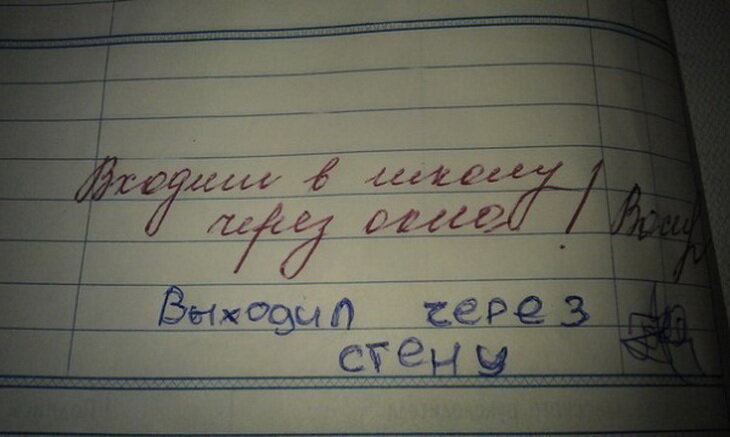 Входит в школу
через окно!
Выходил через
стену